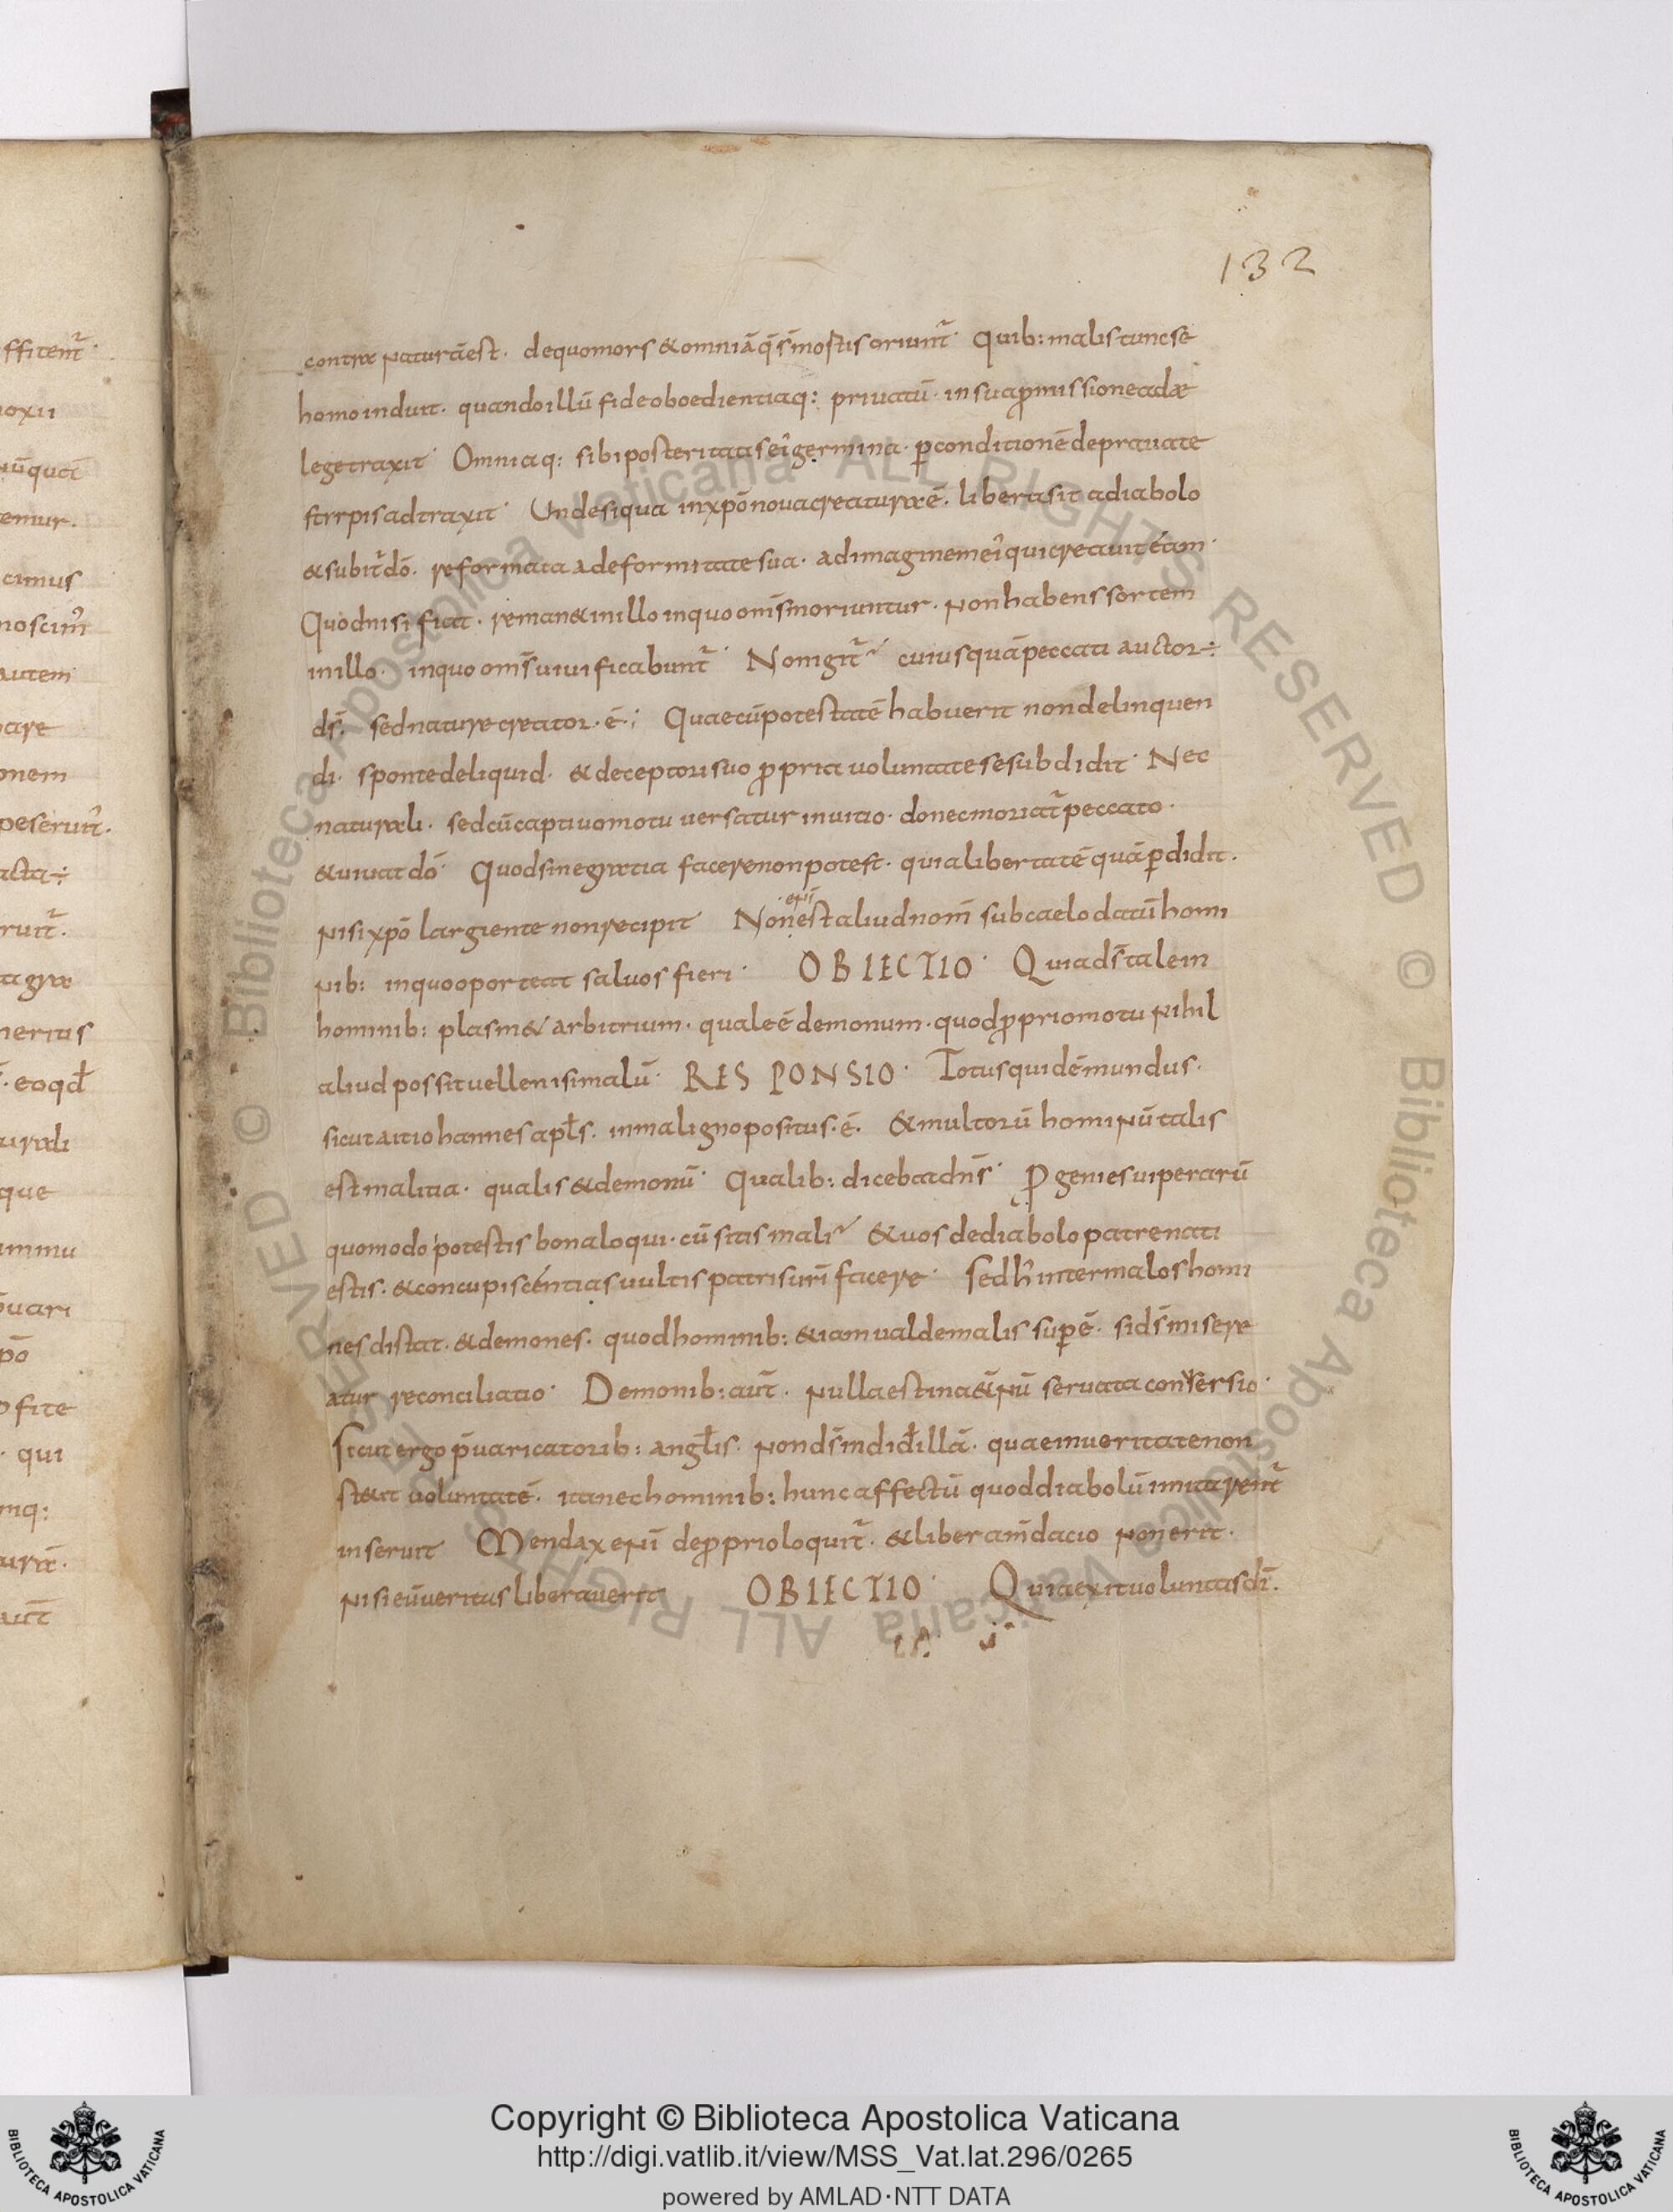 132
contra naturā est. de quo mors & omnia q̄ s̄ mostis oriunt̄. Quib: malis tunc se
homo induit. quando illū fide oboedientiaq: priuatū. in sua p̄missione adæ
lege traxit. Omniaq: sibi posteritatis ei' germina. p conditionē deprauate
stirpis adtraxit. Unde si qua in xp̄o noua creatura ē. libera sit a diabolo
& subit̄ dō. reformata a deformitate sua. ad imaginem ei' qui creauit eam.
Quod nisi fiat. reman& in illo in quo om̄s moriuntur. non habens sortem
in illo. in quo om̄s uiuificabunt̄. Non igit̄ cuiusquā peccati auctor ÷
ds̄. sed nature creator. ē.; Quae cū potestatē habuerit non delinquen
di. sponte deliquid. & deceptori suo p̄pria uoluntate se subdidit. Nec
naturali. sed cū captiuo motu uersatur in uitio. donec moriat̄ peccato.
& uiuat dō. Quod sine gratia facere non potest. quia libertatē quā pdidit.
nisi xp̄o largiente non recipit. Non enī est aliud nom̄ sub caelo datū homi
nib: in quo oporteat saluos fieri. OBIECTIO. Quia ds̄ talem
hominib: plasm& arbitrium. quale ē demonum. quod p̄prio motu nihil
aliud possit uelle nisi malū. RESPONSIO. Totus quidē mundus.
sicut ait iohannes apl̄s. in maligno positus. ē. & multorū hominū talis
est malitia. qualis & demonū. Qualib: dicebat dn̄s. P̄genies uiperarū
quomodo potestis bona loqui. cū sitis mali. & uos de diabolo patre nati
estis. & concupiscentias uultis patris ur̄i facere. Sed h' inter malos homi
nes distat. & demones. quod hominib: &iam ualde malis sup ē. si ds̄ misere
atur reconciliatio. Demonib: aūt. nulla est in a&ernū seruata conuersio.
Sicut ergo p̄uaricatorib: angl̄is. non ds̄ indid' illā. quae in ueritate non
st&it uoluntatē. ita nec hominib: hunc affectū quod diabolū imitarent̄
inseruit. Mendax enī de p̄prio loquit̄. & liber a m̄dacio non erit.
nisi eū ueritas liberauerit OBIECTIO. Quia exit uoluntas dī.
Copyright © Biblioteca Apostolica Vaticana
http://digi.vatlib.it/view/MSS_Vat.lat.296/0265
powered by AMLAD·NTT DATA